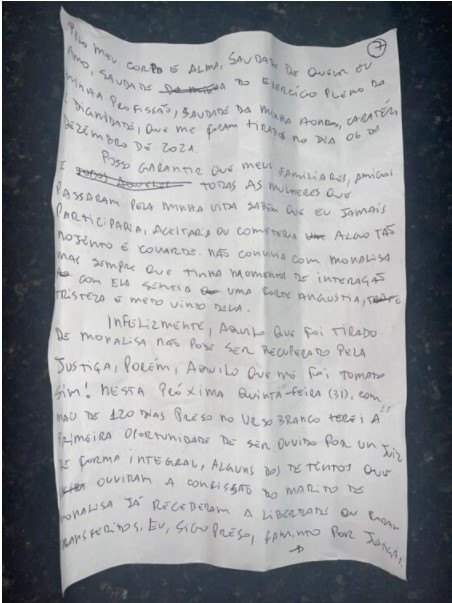 7
PELO MEU CORPO E ALMA, SAUDADE DE QUEM EU
AMO, SAUDADE DO EXERCÍCIO PLENO DA
MINHA PROFISSÃO, SAUDADE DA MINHA HONRA, CARATÉR,
E DIGNIDADE, QUE ME FORAM TIRADOS NO DIA 06 DE
DEZEMBRO DE 2021.
POSSO GARANTIR QUE MEUS FAMILIARES, AMIGOS
E TODAS AS MULHERES QUE
PASSARAM PELA MINHA VIDA SABEM QUE EU JAMAIS
PARTICIPARIA, ACEITARIA OU COMETERIA ALGO TÃO
NOJENTO E COVARDE. NÃO CONVIVIA COM MONALISA
MAS SEMPRE QUE TINHA MOMENTOS DE INTERAÇÃO
COM ELA SENTIA UMA FORTE ANGUSTIA,
TRISTEZA E MEDO VINDO DELA.
INFELIZMENTE, AQUILO QUE FOI TIRADO
DE MONALISA NÃO PODE SER RECUPERADO PELA
JUSTIÇA, PORÉM, AQUILO QUE ME FOI TOMADO
SIM! NESTA PRÓXIMA QUINTA-FEIRA (31), COM
MAIS DE 120 DIAS PRESO NO URSO BRANCO TEREI A
PRIMEIRA OPORTUNIDADE DE SER OUVIDO POR UM JUIZ
DE FORMA INTEGRAL, ALGUNS DOS DETENTOS QUE
OUVIRAM A CONFISSÃO DO MARIDO DE
MONALISA JÁ RECEBERAM A LIBERDADE OU FORAM
TRANSFERIDOS. EU, SIGO PRESO, FAMINTO POR JUSTIÇA,